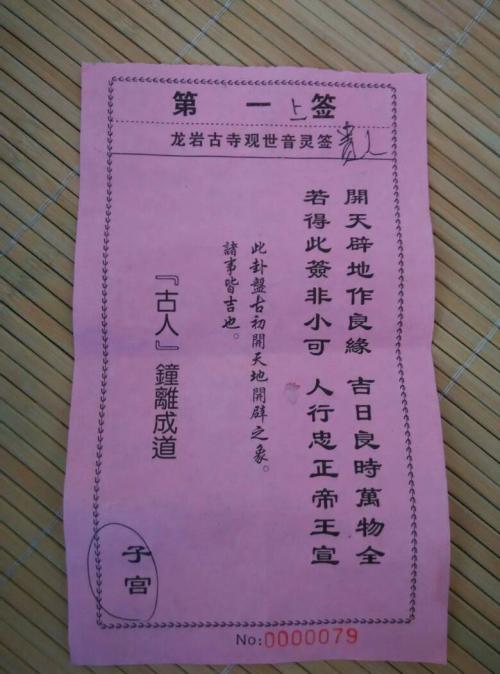 第一上签
龙岩古寺观世音灵签
開天辟地作良緣 吉日良時萬物全
若得此簽非小可 人行忠正帝王宣
此卦盤古初開天地開辟之象。
諸事皆吉也。
『古人』鐘離成道
子宫
No:0000079